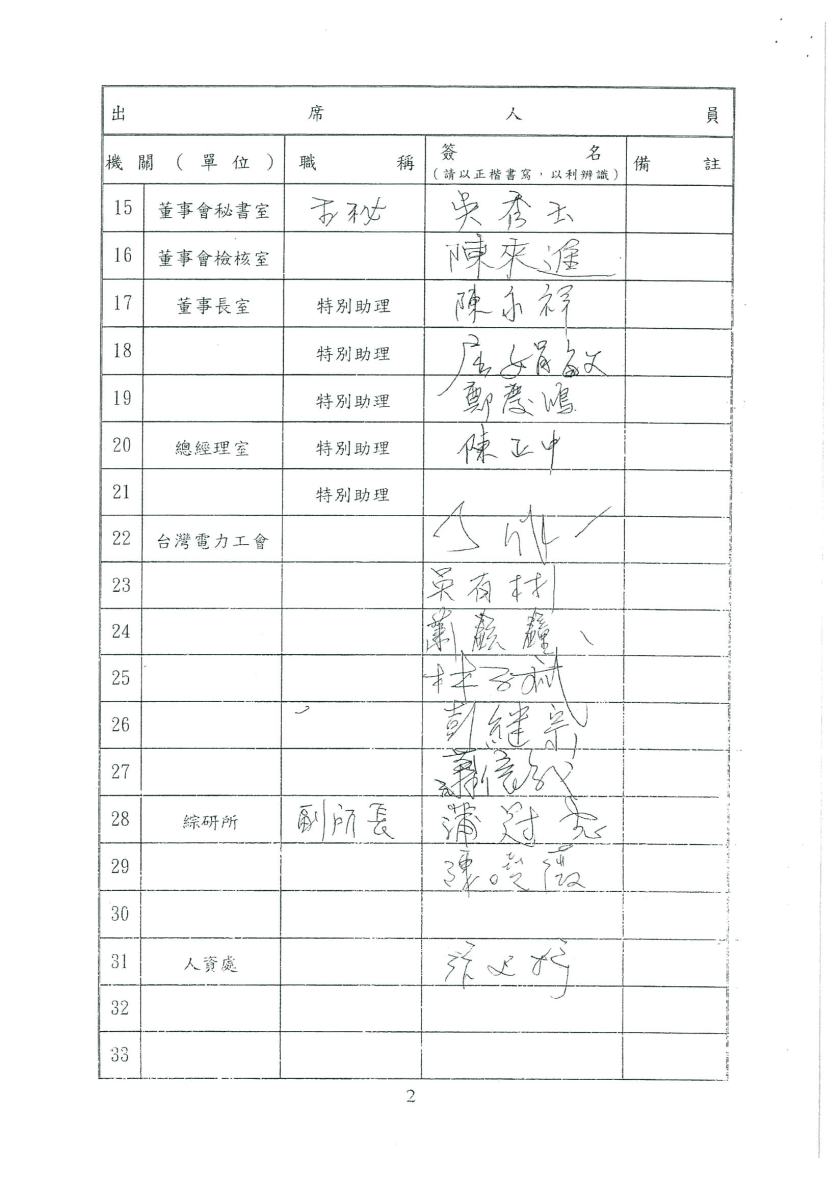 出席人員
機關(單位) 職稱 簽名 備註
(請以正楷書寫,以利辨識)
15 董事會秘書室 主秘 吳秀玉
16 董事會檢核室 陳來進
17 董事長室 特別助理 陳永祥
18 特別助理
19 特別助理 鄭慶鴻
20 總經理室 特別助理 陳正中
21 特別助理
22 台灣電力工會
23 吳有材
24
25 林子斌
26 彭繼宗
27
28 綜研所 副所長 蒲冠志
29 陳曉薇
30
31 人資處
32
33
2